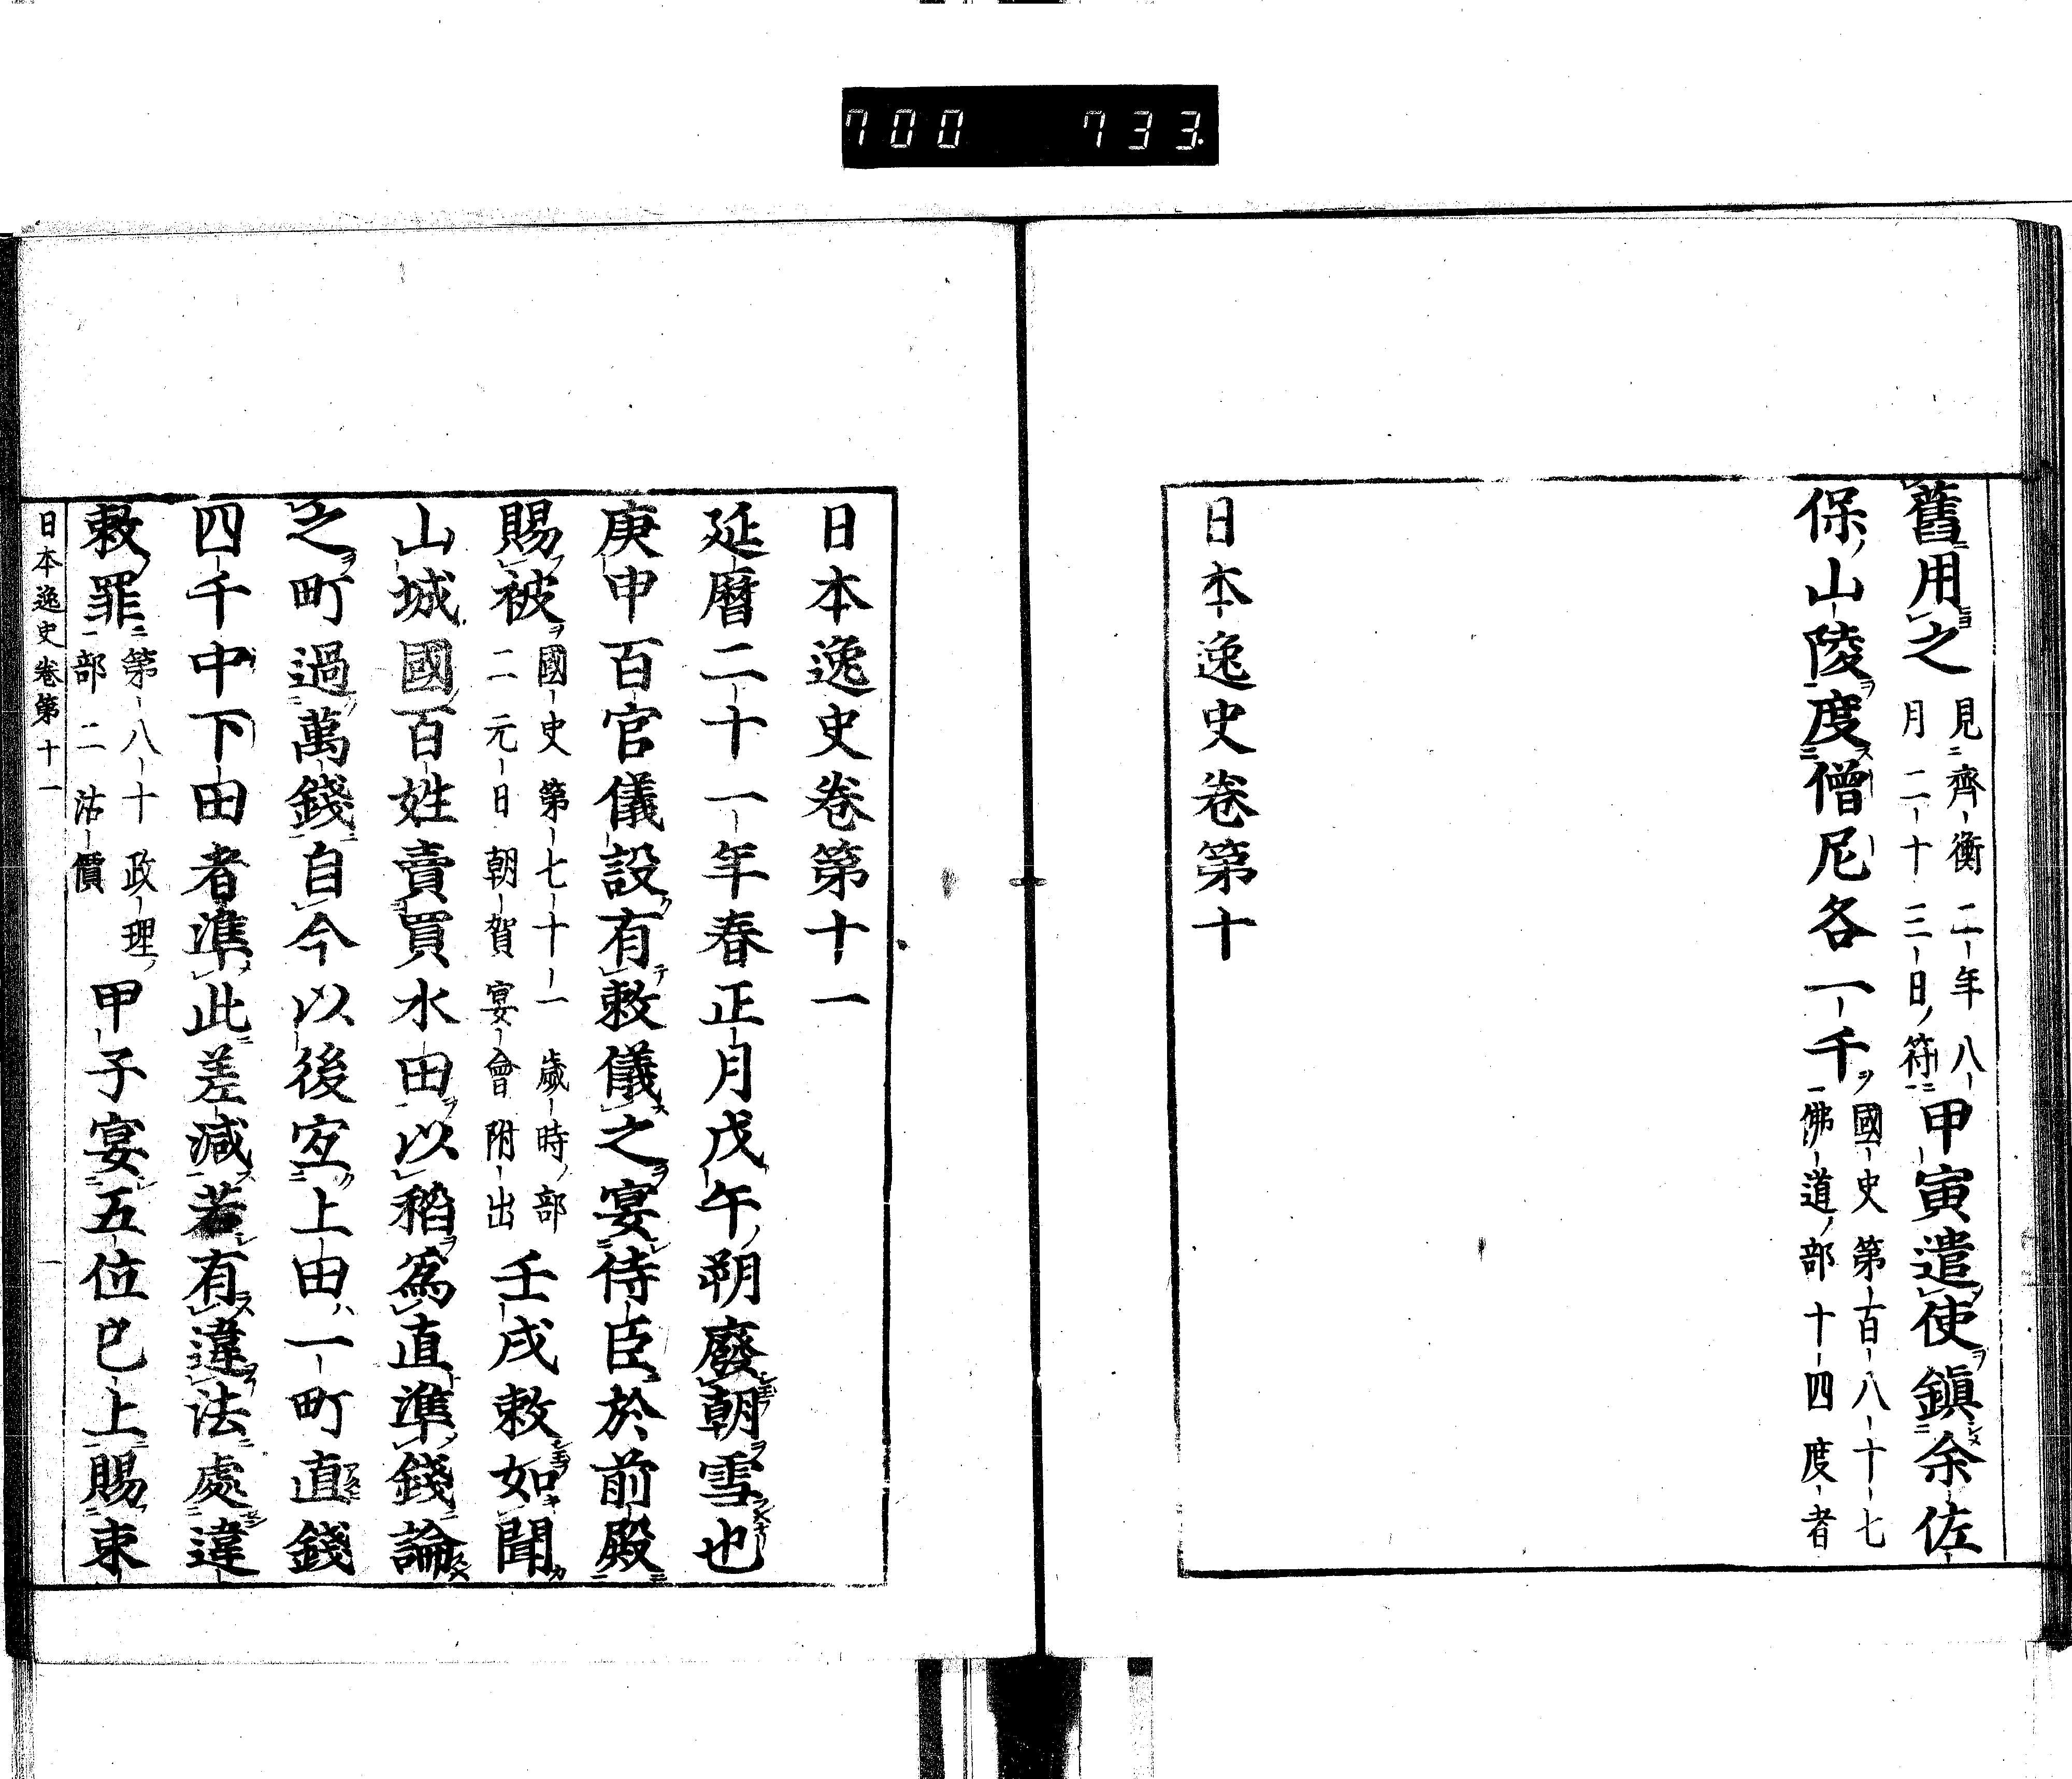 700 733
舊用之見齊衡二年八月二十三日符甲寅遣使鎭余佐
保山陵度僧尼各一千國史第百八十七佛道部十四度者
日本逸史卷第十
日本逸史卷第十一
延曆二十一年春正月戊午朔廢朝雪也
庚申百官儀設有敕儀之宴侍臣於前殿
賜被國史第七十一歲時部二元日朝賀宴會附出壬戌敕如聞
山城國百姓賣買水田以稻爲直準錢論
之町過萬錢自今以後定上田一町直錢
四千中下田者準此差減若有違法處違
敕罪第八十政理部二沽價甲子宴五位已上賜束
日本逸史卷第十一 一